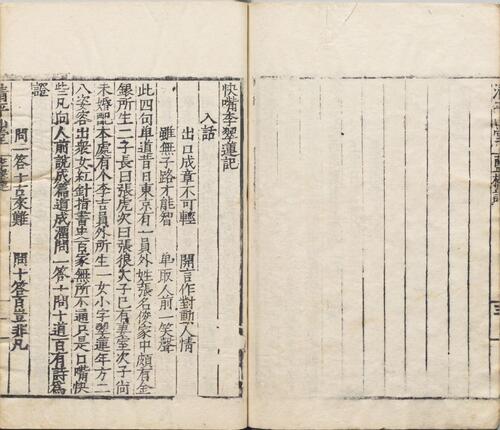 快嘴李翠蓮記
入話
出口成章不可輕　開言作對動人情
雖無子路才能智　单取人前一笑聲
此四句单道昔日東京有一員外姓張名俊家中頗有金
銀所生二子長曰張虎次曰張狼大子已有妻室次子尚
未婚配本處有个李吉員外所生一女小字翠蓮年方二
八姿容出衆女紅針指書史百家無所不通只是口嘴快
些凡向人前說成篇道成溜問一答十問十道百有詩爲
證
問一答十古來難　問十答百豈非凡
清平山堂